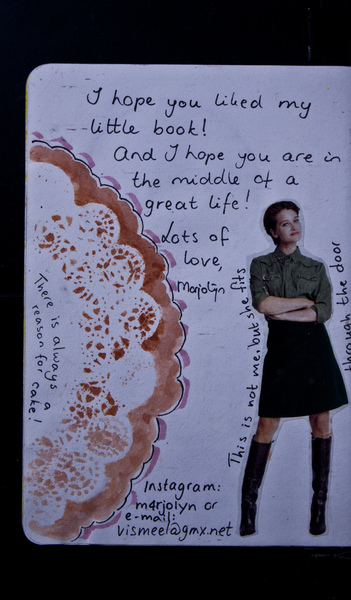 I hope you liked my
little book!
And I hope you are in
the middle of a
great life!
Lots of
love,
Marjolijn
There is always a
reason for cake!
This is not me, but he fits
through the door
Instagram:
m4rjolyn or
e-mail:
vismeel@gmx.net